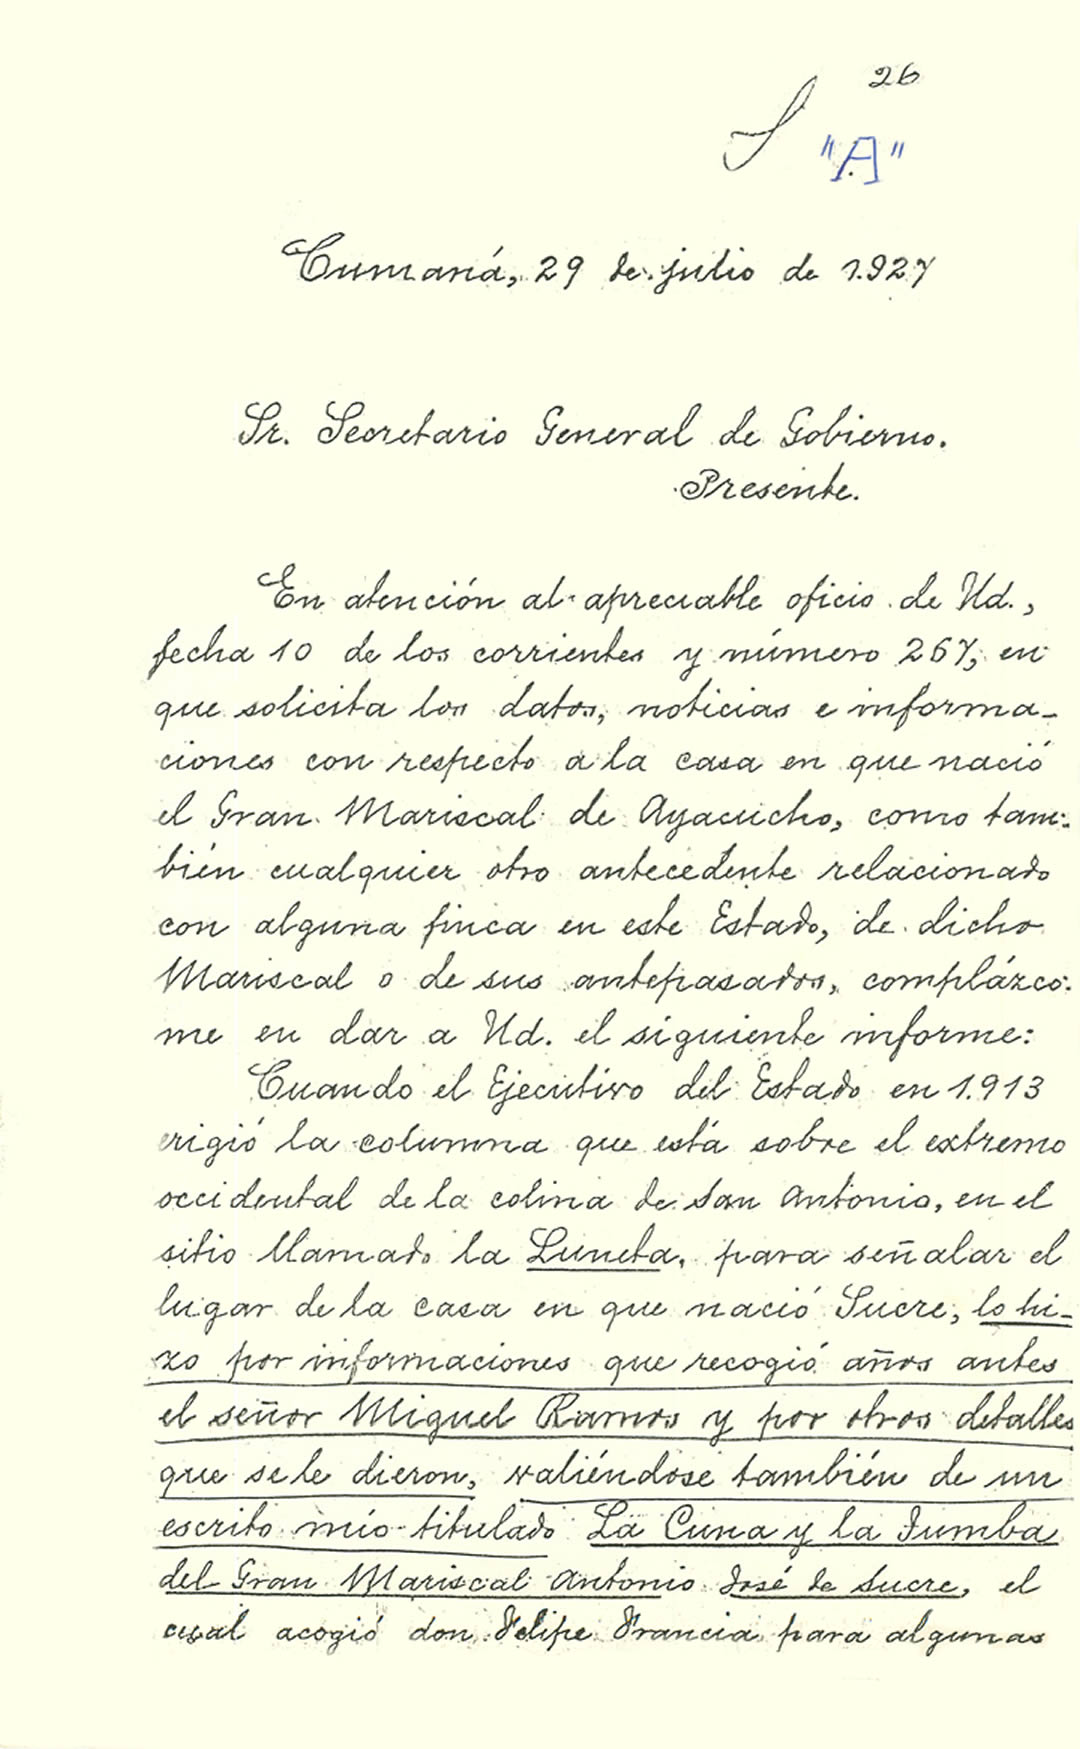 26
"A"
Cumaná, 29 de julio de 1.927
Sr. Secretario General de Gobierno.
Presente.
En atención al apreciable oficio de Ud.,
fecha 10 de los corrientes y número 267, en
que solicita los datos, noticias e informa-
ciones con respecto a la casa en que nació
el Gran Mariscal de Ayacucho, como tam-
bién cualquier otro antecedente relacionado
con alguna finca en este Estado, de dicho
Mariscal o de sus antepasados, complázco-
me en dar a Ud. el siguiente informe:
Cuando el Ejecutivo del Estado en 1.913
erigió la columna que está sobre el extremo
occidental de la colina de San Antonio, en el
sitio llamado la Luneta, para señalar el
lugar de la casa en que nació Sucre, lo hi-
zo por informaciones que recogió años antes
el señor Miguel Ramos y por otros detalles
que se le dieron, valiéndose también de un
escrito mío titulado La Cuna y la Tumba
del Gran Mariscal Antonio José de Sucre, el
cual acogió don Felipe Francia para algunas